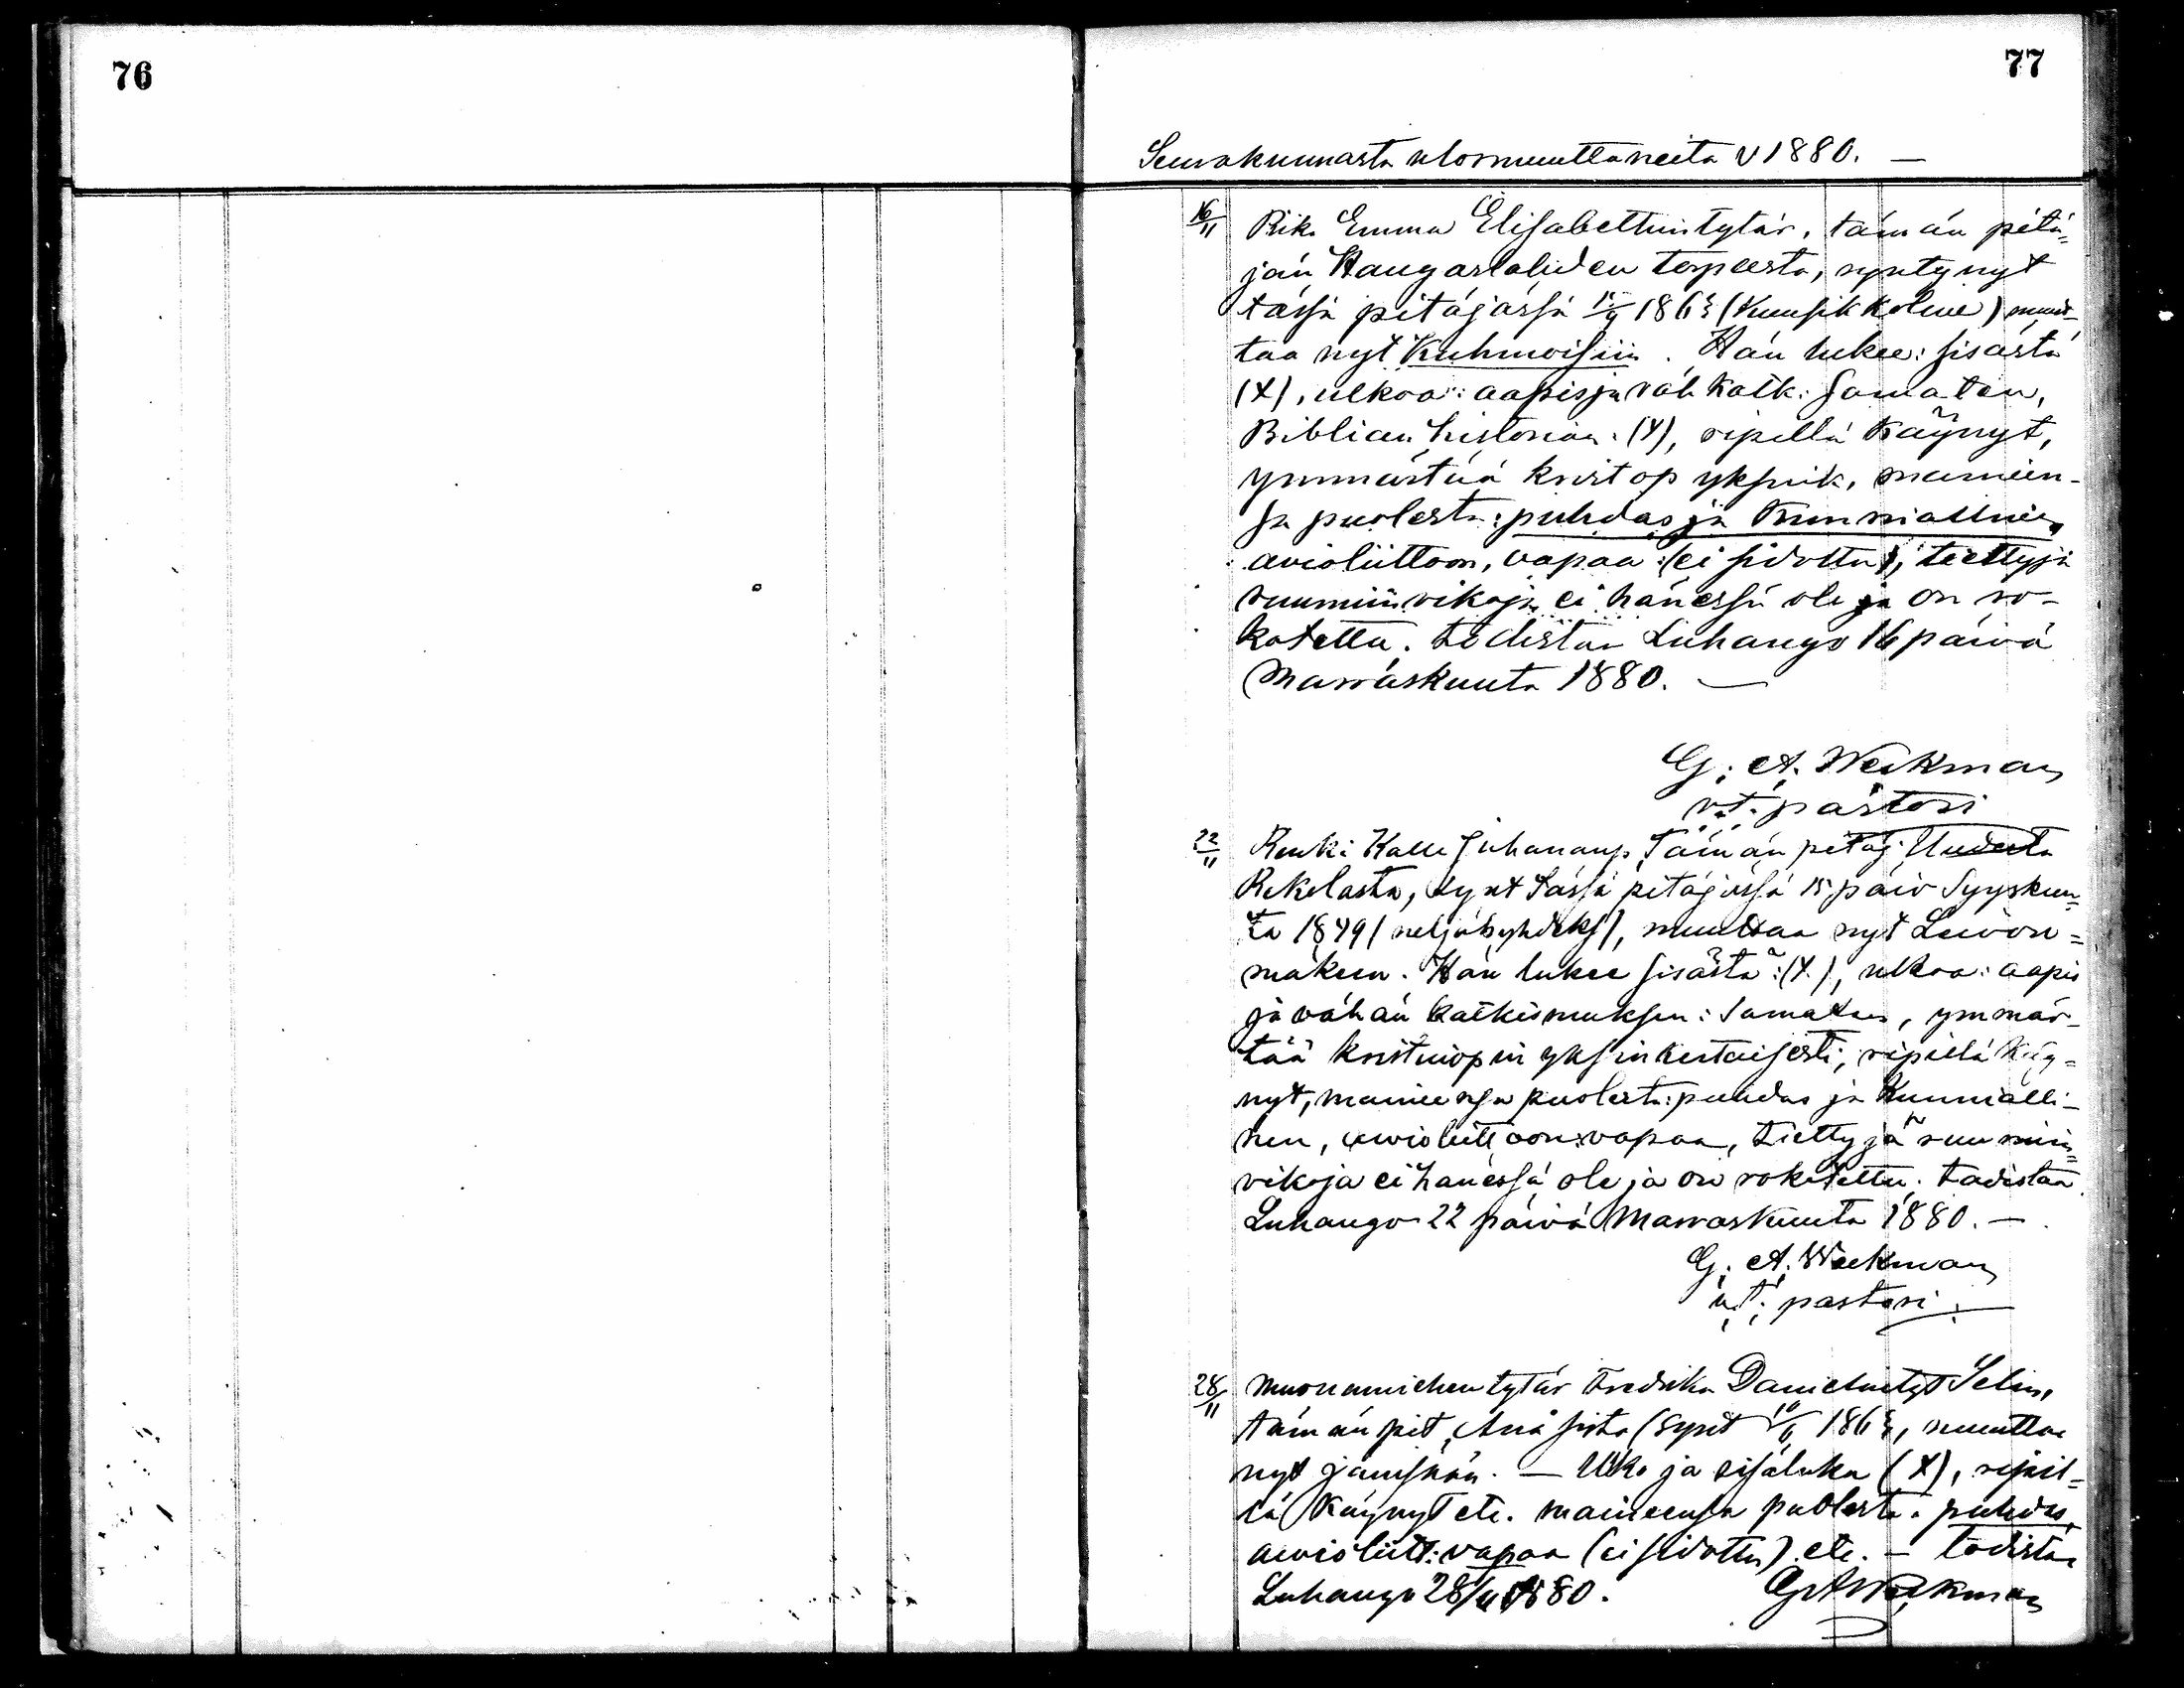 76
77
Seurakunnasta ulosmuuttaneita v 1880. —
16/11 Piika Emma Elisabettintytär, tämän pitä=
jän Kangaslahden torpasta, syntynyt
tässä pitäjässä 1863 (kuusik kolme) muut-
taa nyt Kuhmoisiin. Hän lukee: sisästä
(X), ulkoa: aapis ja väh katk: saman ten,
Biblian historian: (X), ripillä käynyt,
ymmärtää krist op yksink, maineen-
sa puolesta: puhdas ja kunniallinen,
avioliittoon, vapaa: (ei sidottu), tiettyjä
ruumiin vikoja ei hänessä ole ja on ro-
kotettu. todistaa Luhango 16 päivä
Marraskuuta 1880. —
G. A. Weckman
v.t. pastori
22/11 Renki Kalle Juhananp. Tämän pitäj. Uudesta
Rekolasta, synt tässä pitäjässä 15 päiv Syyskuu=
ta 1849 (neljäkyhdeks), muuttaa nyt Leivon=
mäkeen. Hän lukee sisästä: (X), ulkoa: aapis
ja vähän katkismuksen: samaten, ymmär-
tää kristinopin yksinkertaisesti, ripillä käy=
nyt, maineensa puolesta: puhdas ja kunnialli-
nen, avioliittoon: vapaa, tiettyjä ruumiin=
vikoja ei hänessä ole ja on rokotettu. todistaa
Luhango 22 päivä Marraskuuta 1880. —
G. A. Weckman
v.t. pastori.
28/11 Muonamiehen tytär Fredrika Danielintyt Selin,
tämän pit, (synt 1863, muuttaa
nyt Jämsään. — Ulko ja sisäluku (X), ripil=
lä käynyt etc. maineensa puolesta: puhdas,
avioliitt: vapaa (ei sidottu) etc. — todistaa
Luhango 28/11 1880. G A Weckman